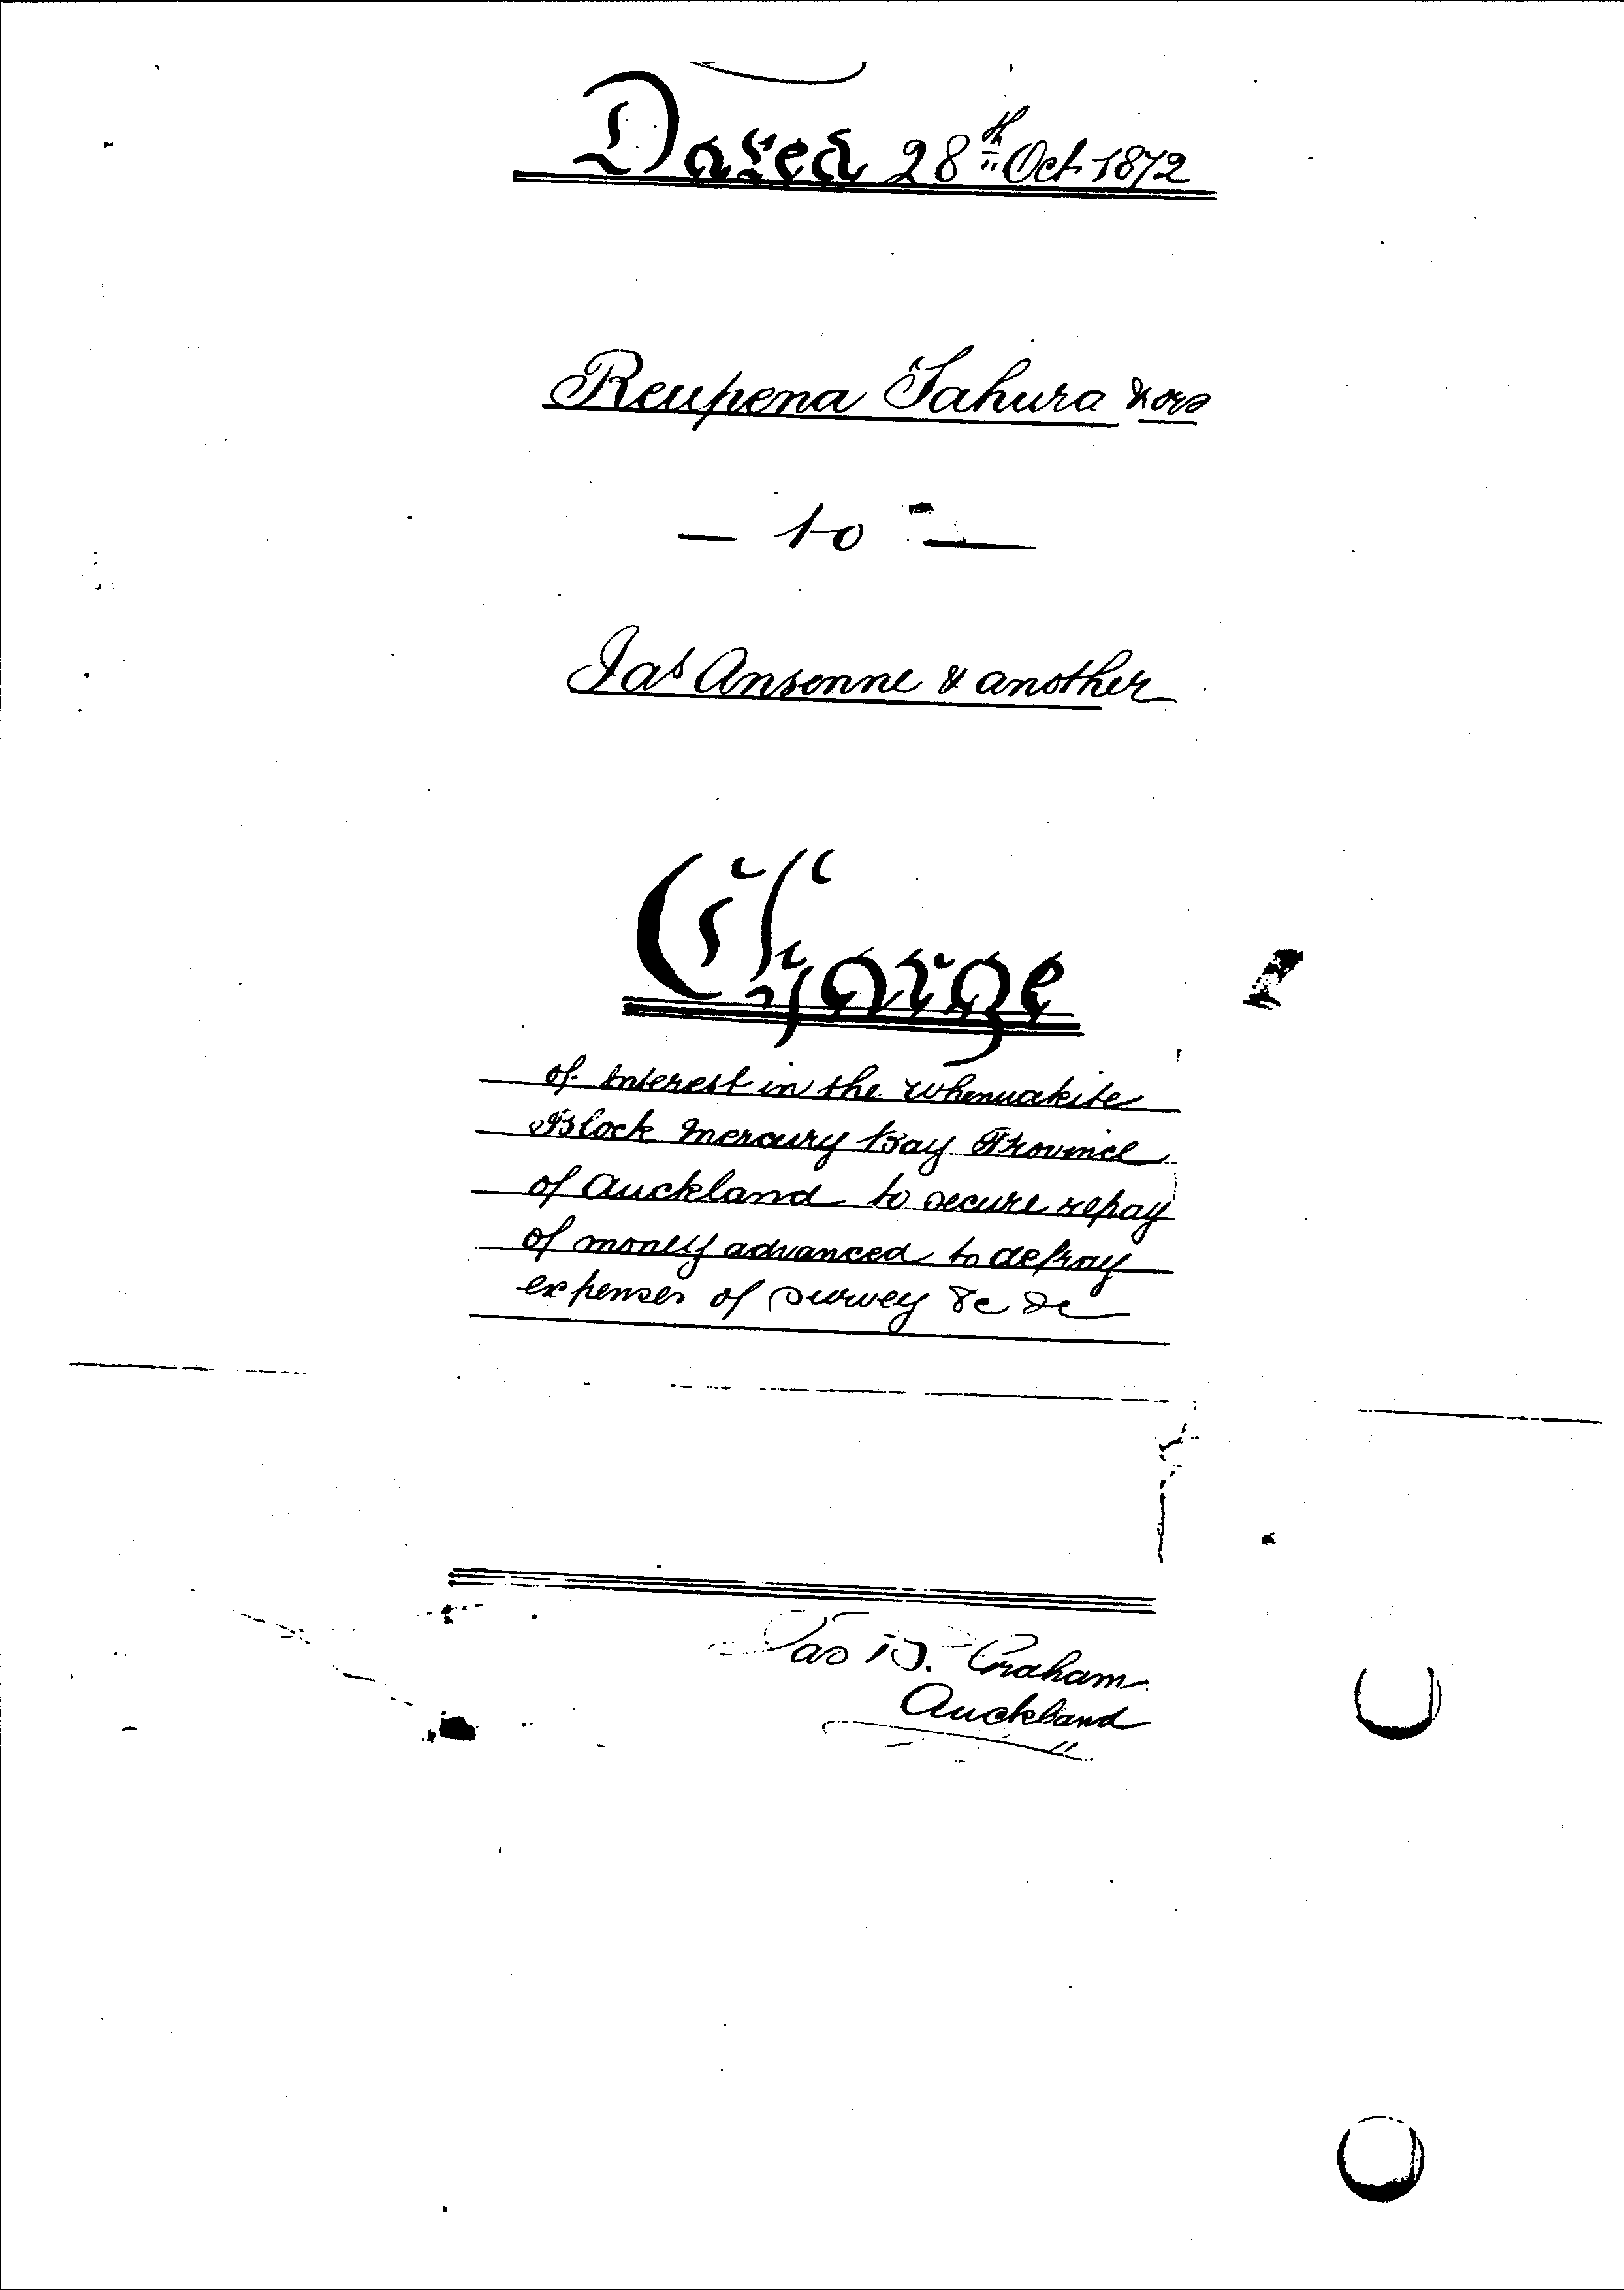 Dated 28th Oct 1872
Reupena Tahura & ors
— to —
Jas Ansenne & another
Charge
of Interest in the Whenuakite
Block Mercury Bay Province
of Auckland to secure repay
of money advanced to defray
expenses of survey &c &c
Jas B. Graham
Auckland